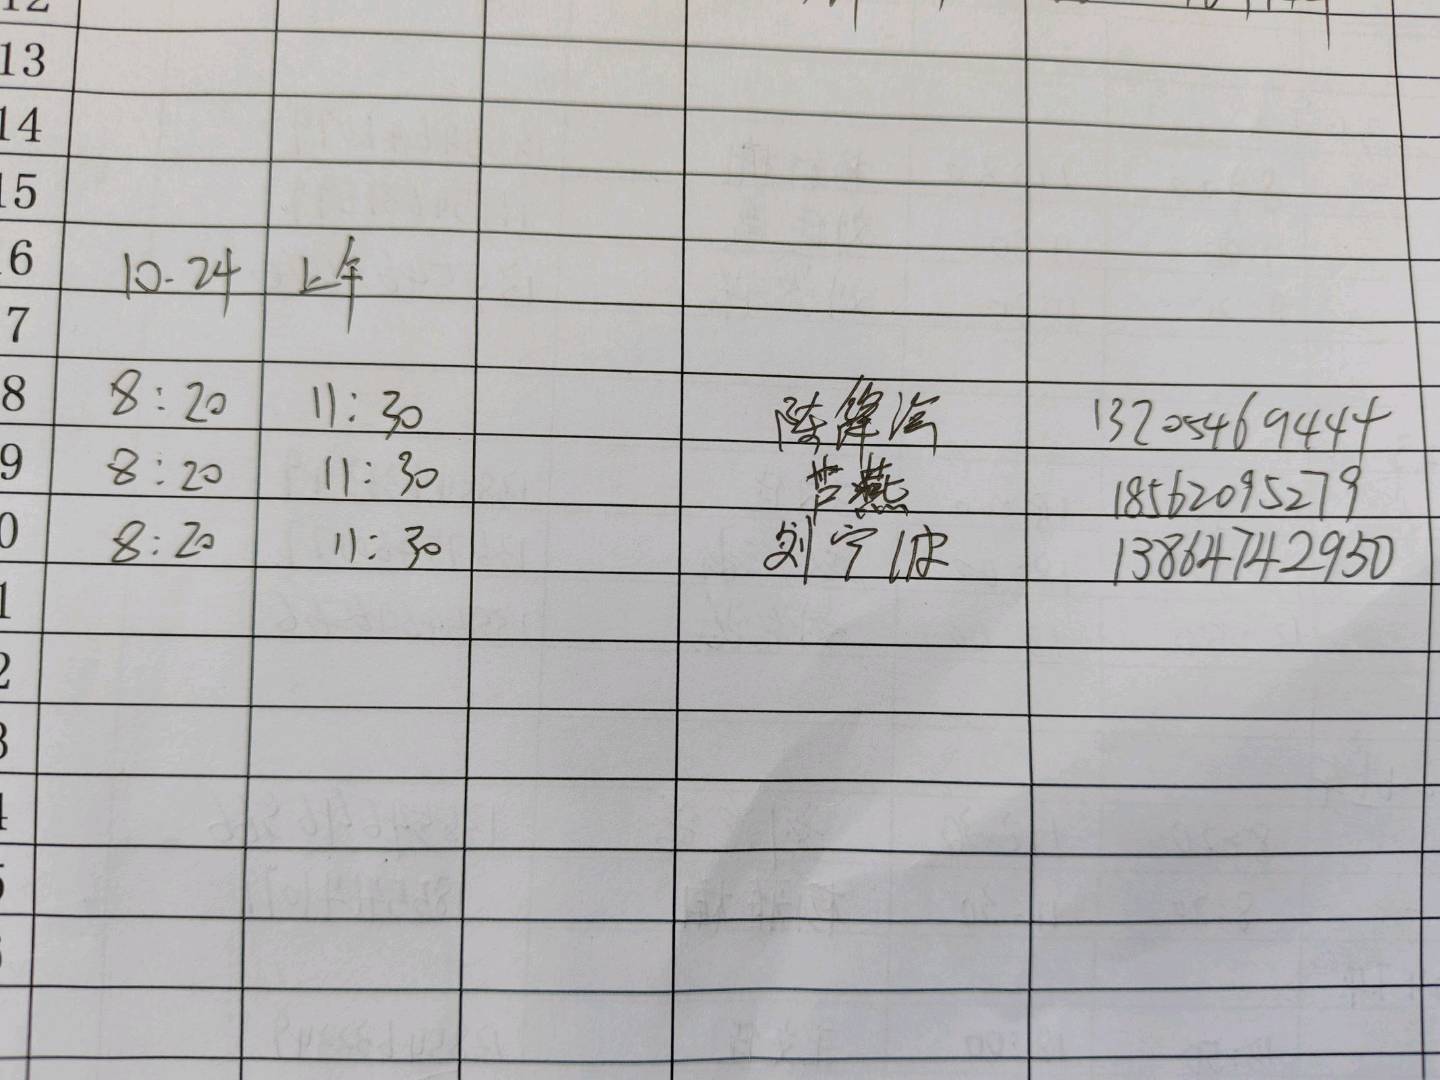 13
14
15
6 10-24 上午
7
8 8:20 11:30 陈 13205469444
9 8:20 11:30 苦燕 18562095279
0 8:20 11:30 刘宁波 13864742950
1
2
3
4
5